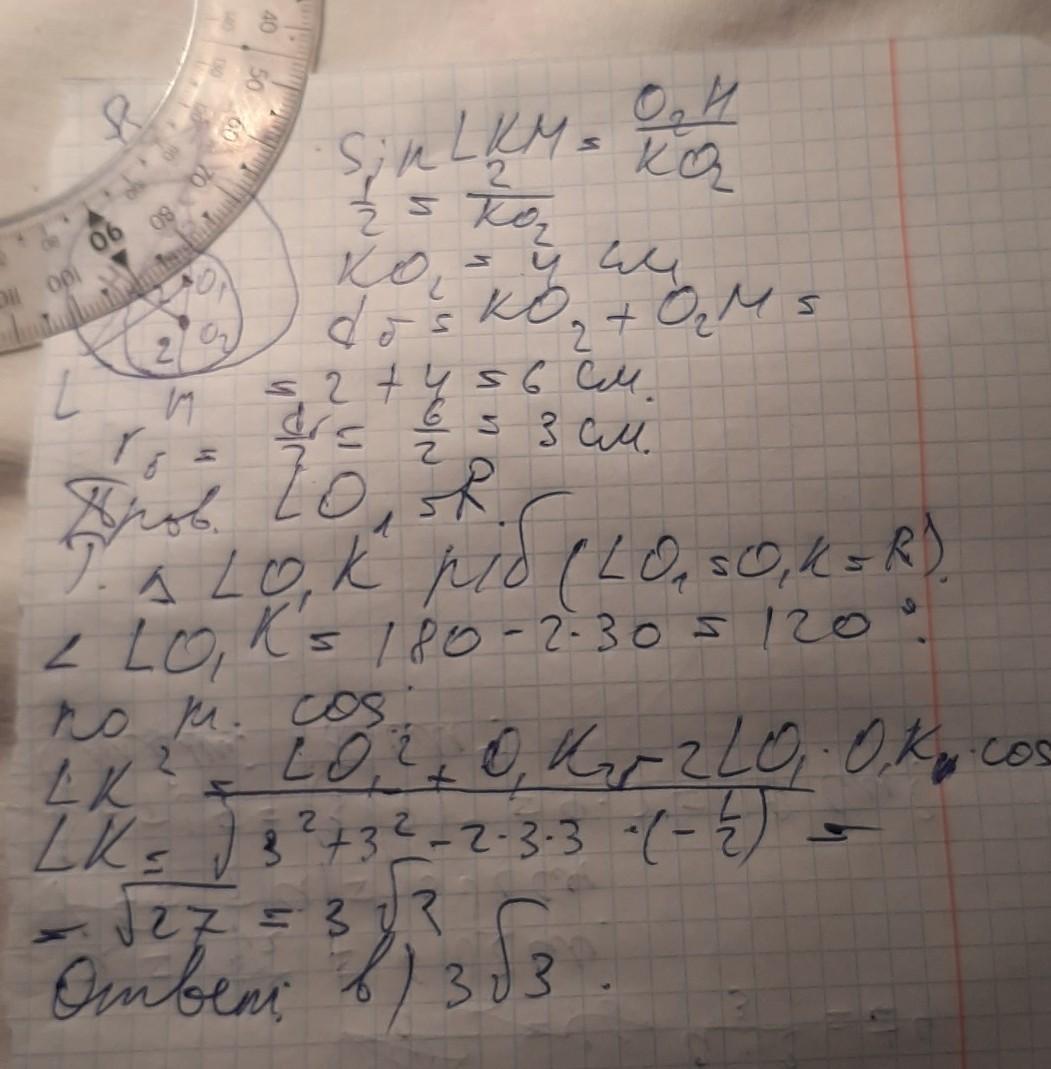 Sin LKM = O₂H / KO₂
1/2 = 2 / KO₂
KO₂ = 4 см
d б = KO₂ + O₂M =
L M = 2 + 4 = 6 см.
r б = d/2 = 6/2 = 3 см.
Пров. LO₁ = R.
Т. Δ LO₁K р/б (LO₁ = O₁K = R).
∠ LO₁K = 180 - 2·30 = 120°.
по т. cos:
LK² = LO₁² + O₁K² - 2LO₁·O₁K · cos
LK = √3² + 3² - 2·3·3 ·(-1/2) =
= √27 = 3√3
Ответ: в) 3√3.
40
50
60
70
80
90
100
110
O₁
O₂
2